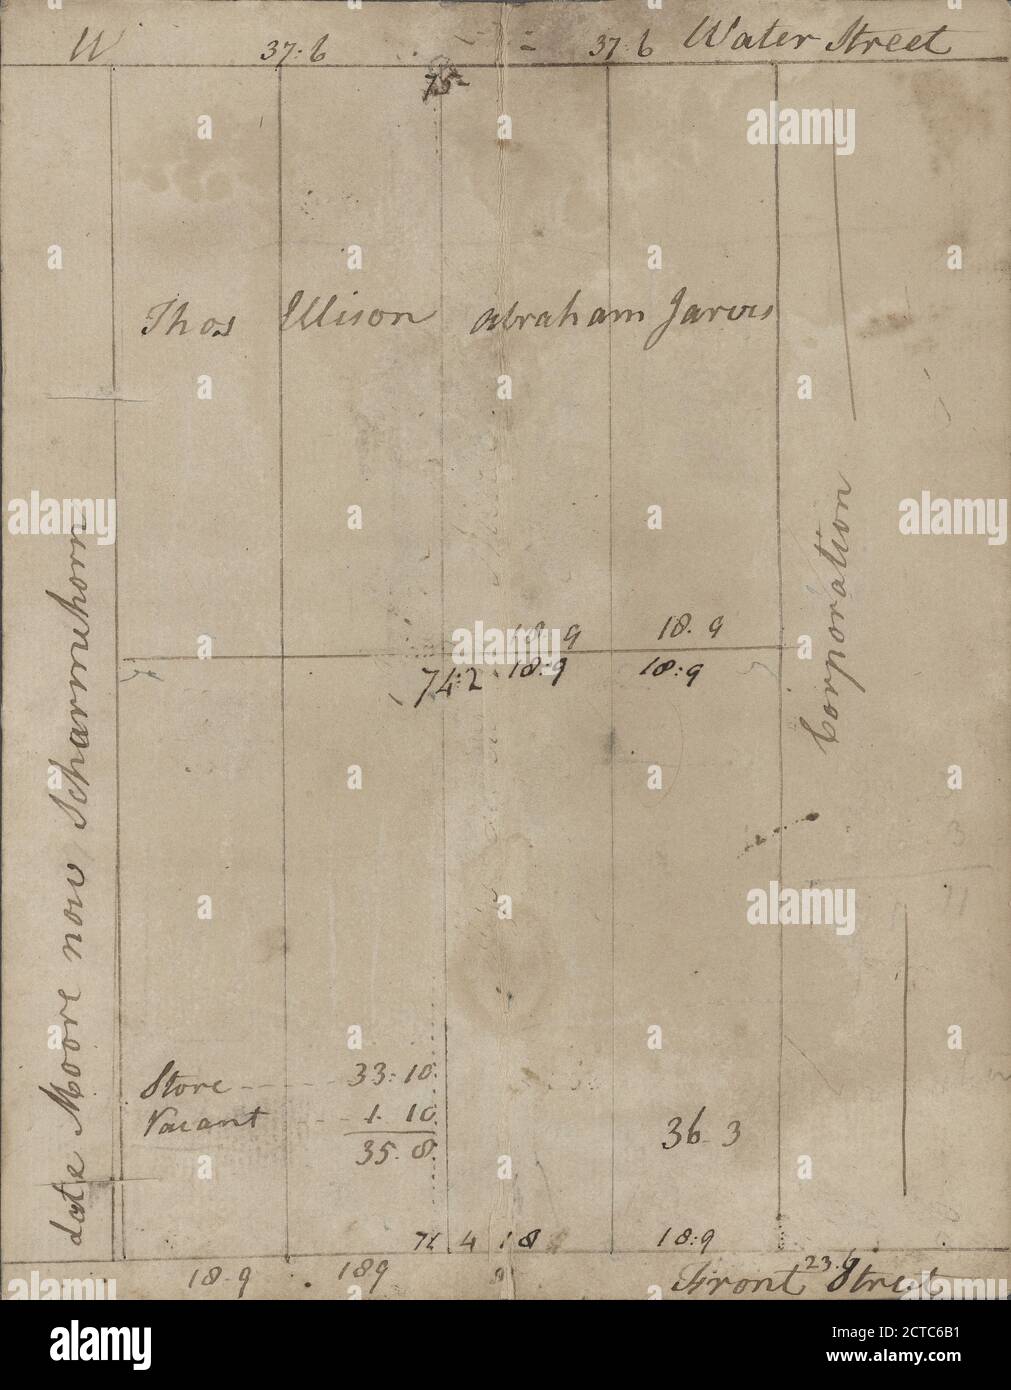 W 37:6 37:6 Water Street
75
Thos Ellison Abraham Jarvis
late Moore now Scharmehorn
Corporation
18.9 18.9
74:2 18:9 18:9
Store 33:10
Vacant 1.10
35.8
36.3
74 4 18 18:9
18.9 189 23.6
Front Street
3
11
alamy
Image ID: 2CTC6B1
www.alamy.com